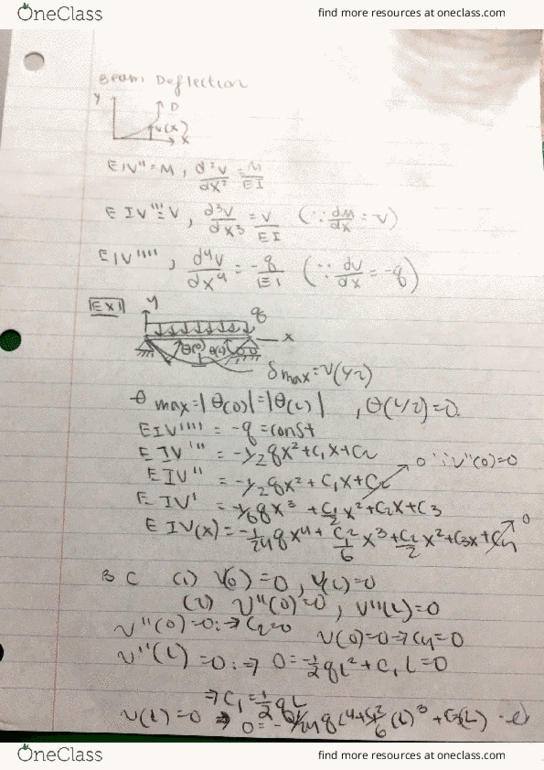 OneClass find more resources at oneclass.com
Beam Deflection
y
D
v(x)
x
EIV" = M, d²v/dx² = M/EI
EIV''' = V, d³v/dx³ = V/EI (∵ dM/dx = V)
EIV'''', d⁴v/dx⁴ = -q/EI (∵ dv/dx = -q)
EX1 y q
θ(0) θ(L) x
δmax = v(L/2)
θmax = |θ(0)| = |θ(L)|, θ(L/2) = 0
EIV'''' = -q = const
EIV''' = -1/2 qx² + C₁x + C₂
EIV'' = -1/2 qx² + C₁x + C₂ 0 ∵ v''(0) = 0
EIV' = -1/6 qx³ + C₁/2 x² + C₂x + C₃
EIV(x) = -1/24 qx⁴ + C₁/6 x³ + C₂/2 x² + C₃x + C₄ 0
BC (1) V(0) = 0, V(L) = 0
(2) V''(0) = 0, V''(L) = 0
V''(0) = 0 : → C₂ = 0 V(0) = 0 → C₄ = 0
V''(L) = 0 : → 0 = -1/2 qL² + C₁L = 0
→ C₁ = 1/2 qL
V(L) = 0 → 0 = -1/24 qL⁴ + (L)³ + C₃(L)
OneClass find more resources at oneclass.com